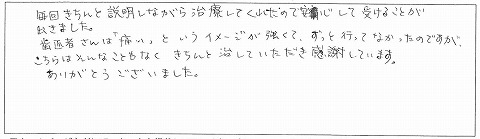 毎回きちんと説明しながら治療してくれたので安心して受けることが
出来ました。
歯医者さんは「痛い」というイメージが強くて、ずっと行ってなかったのですが、
こちらはそんなこともなくきちんと治していただき感謝しています。
ありがとうございました。